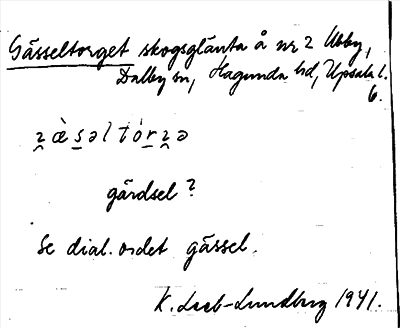 Gässeltorget skogsglänta å nr 2 Ubby,
Dalby sn, Hagunda hd, Upsala l.
6.
gärdsel?
Se dial. ordet gässel.
K. Leeb-Lundberg 1941.